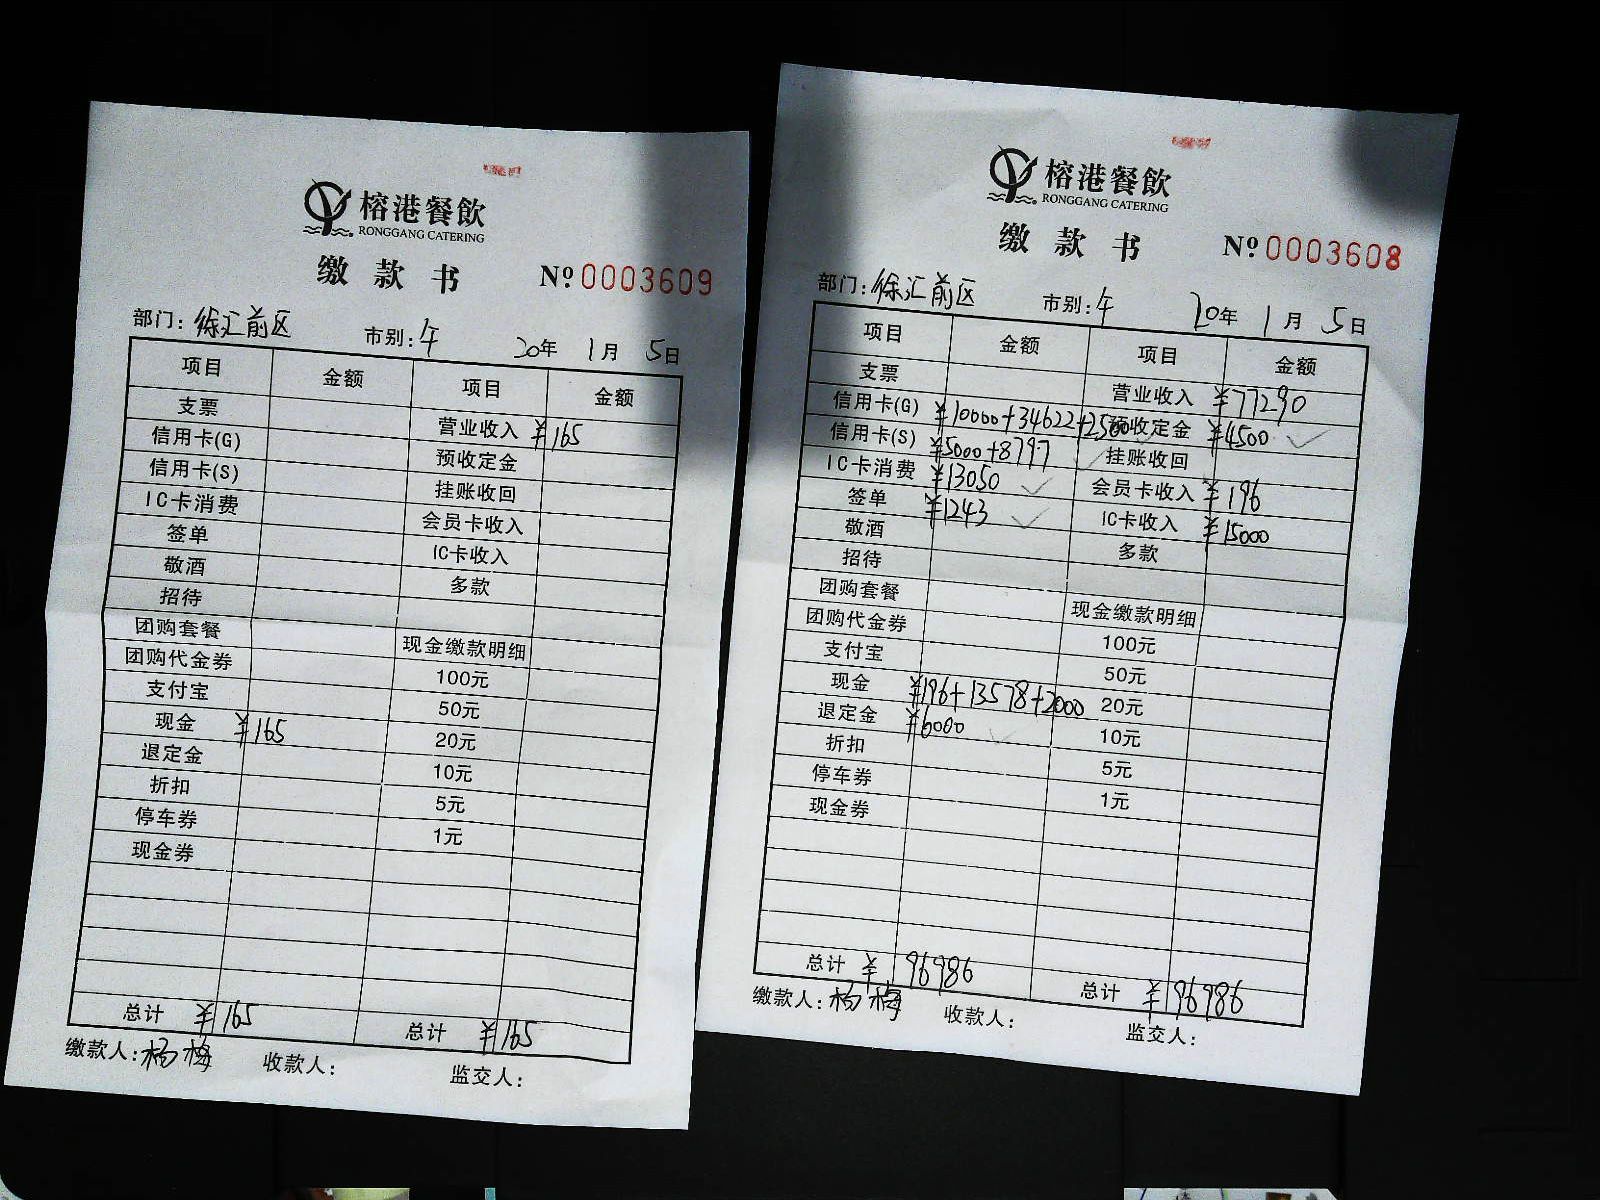 榕港餐飲
RONGGANG CATERING
缴款书 Nº 0003609
部门: 徐汇前区 市别: 午 20年 1月 5日
项目 金额 项目 金额
支票 营业收入 ¥165
信用卡(G) 预收定金
信用卡(S) 挂账收回
IC卡消费 会员卡收入
签单 IC卡收入
敬酒 多款
招待
团购套餐 现金缴款明细
团购代金券 100元
支付宝 50元
现金 ¥165 20元
退定金 10元
折扣 5元
停车券 1元
现金券
总计 ¥165 总计 ¥165
缴款人: 杨梅 收款人: 监交人:
榕港餐飲
RONGGANG CATERING
缴款书 Nº 0003608
部门: 徐汇前区 市别: 午 20年 1月 5日
项目 金额 项目 金额
支票 营业收入 ¥77290
信用卡(G) ¥10000+34622+2500 预收定金 ¥4500
信用卡(S) ¥5000+8797 挂账收回
IC卡消费 ¥13050 会员卡收入 ¥196
签单 ¥1243 IC卡收入 ¥15000
敬酒 多款
招待
团购套餐 现金缴款明细
团购代金券 100元
支付宝 50元
现金 ¥196+13578+2000 20元
退定金 ¥6000 10元
折扣 5元
停车券 1元
现金券
总计 ¥96986 总计 ¥96986
缴款人: 杨梅 收款人: 监交人: